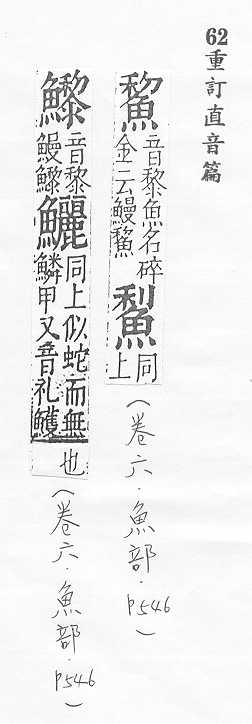 62重訂直音篇
鯬
音黎魚名碎
金云鰻鯬
同
上
（卷六．魚部．p546）
音黎
鰻
鱺
同上似蛇而無
鱗甲又音礼
也
（卷六．魚部．p546）